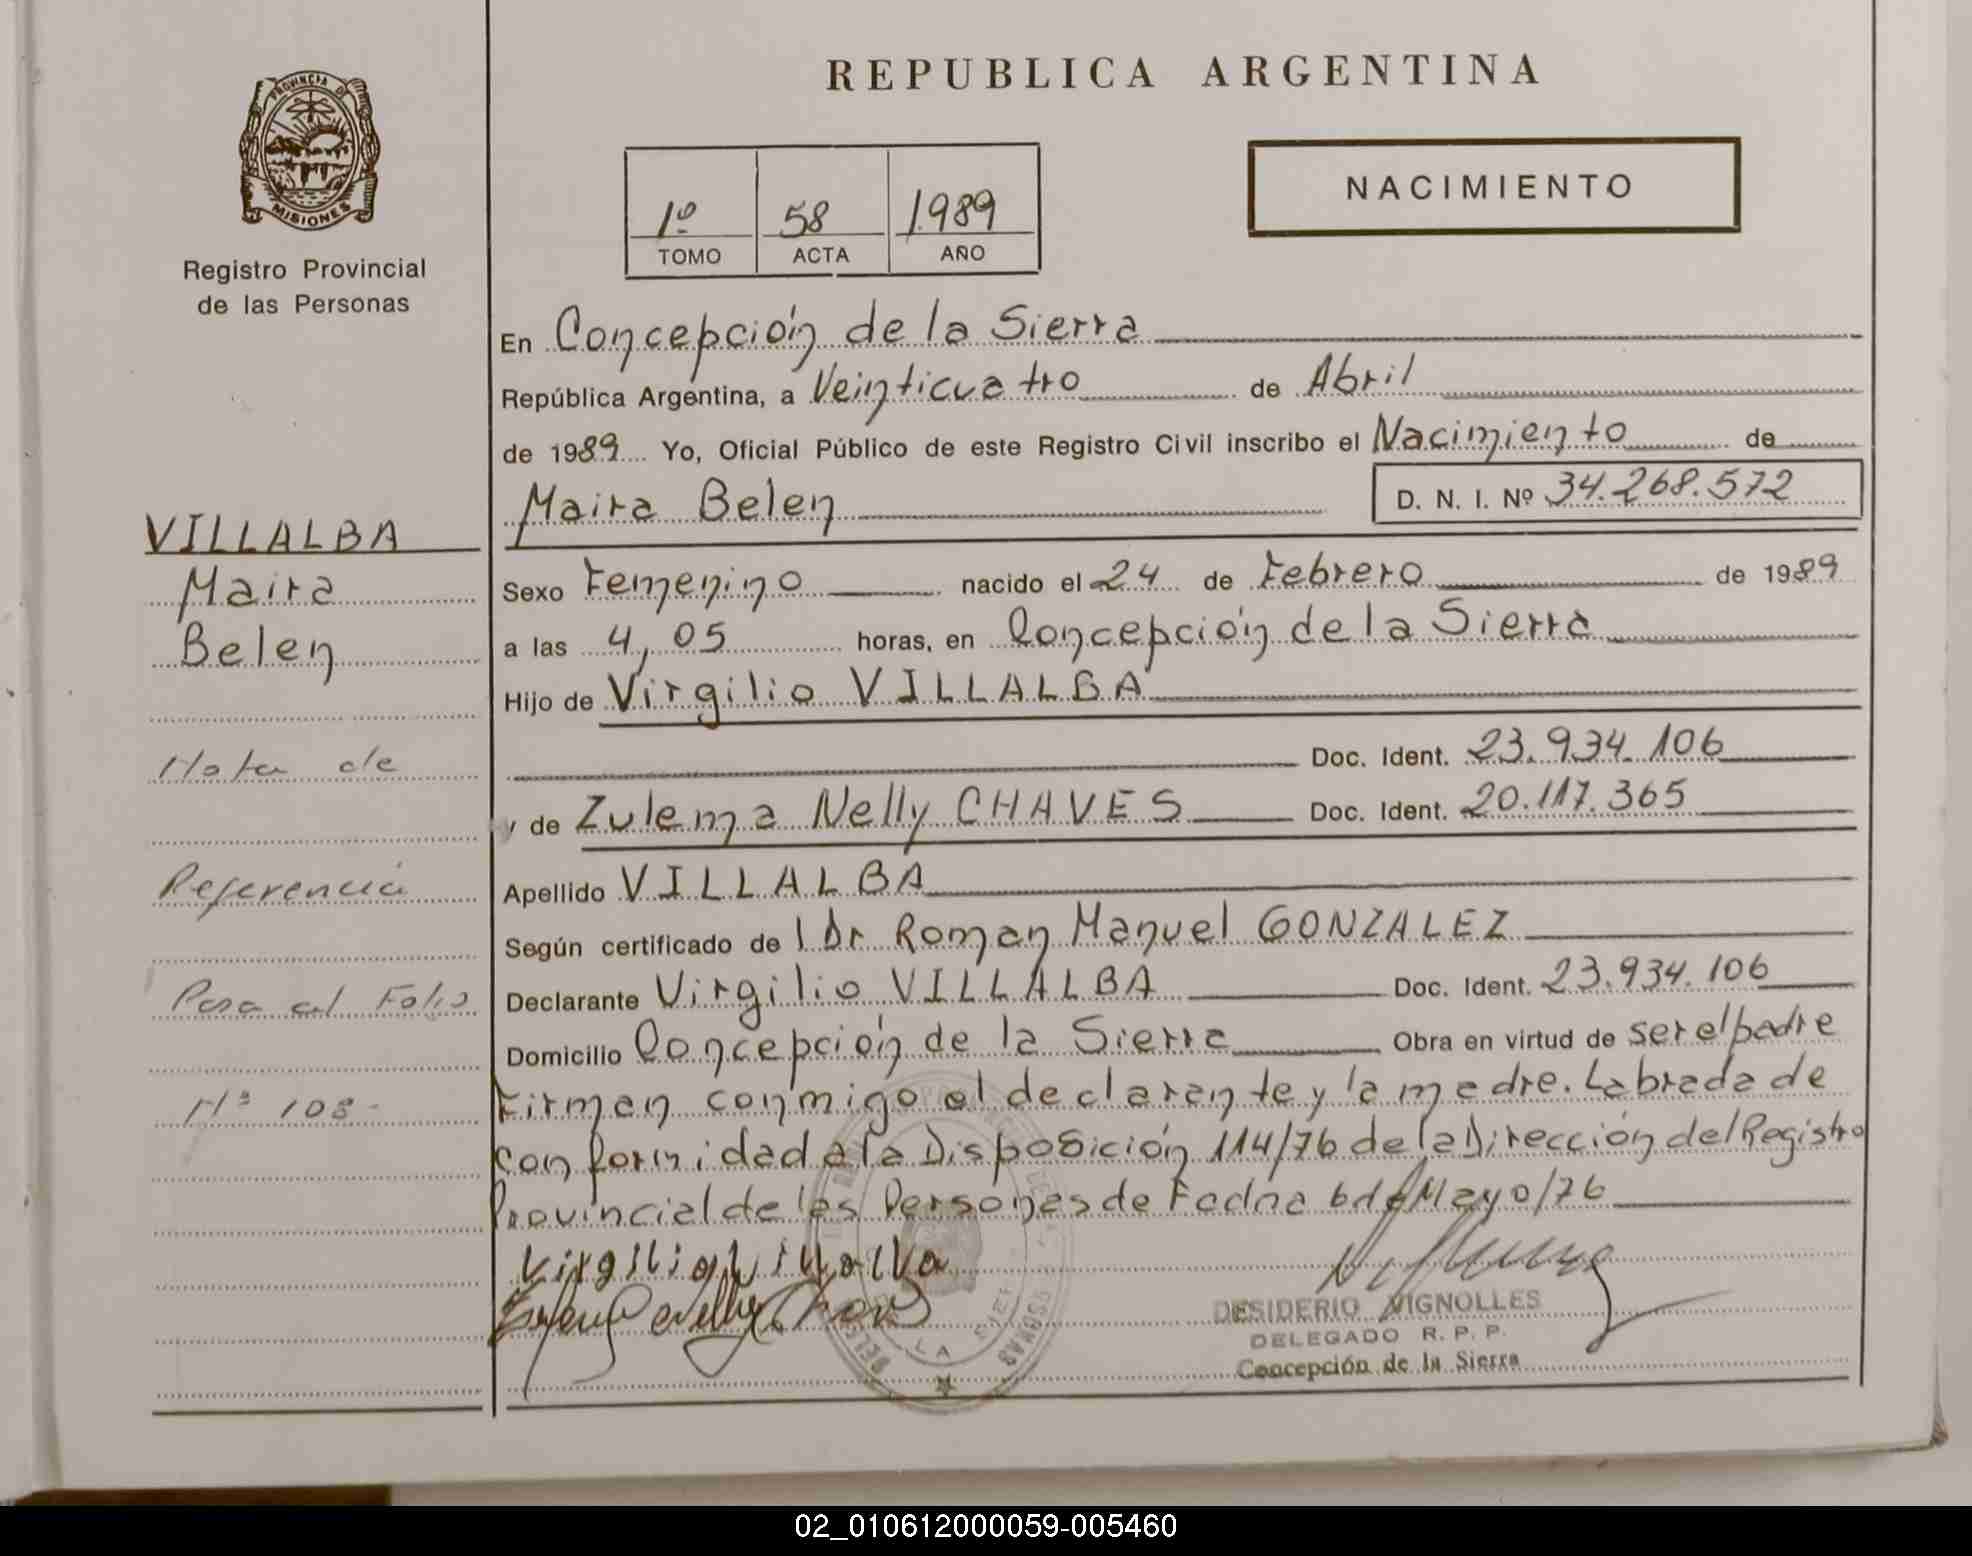 REPUBLICA ARGENTINA
PROVINCIA DE
MISIONES
Registro Provincial
de las Personas
1º 58 1.989
TOMO ACTA AÑO
NACIMIENTO
En Concepción de la Sierra
República Argentina, a Veinticuatro de Abril
de 1989 Yo, Oficial Público de este Registro Civil inscribo el Nacimiento de
Maira Belen D. N. I. Nº 34.268.572
Sexo Femenino nacido el 24 de Febrero de 1989
a las 4,05 horas, en Concepción de la Sierra
Hijo de Virgilio VILLALBA
Doc. Ident. 23.934.106
y de Zulema Nelly CHAVES Doc. Ident. 20.117.365
Apellido VILLALBA
Según certificado del Dr Roman Manuel GONZALEZ
Declarante Virgilio VILLALBA Doc. Ident. 23.934.106
Domicilio Concepción de la Sierra Obra en virtud de ser el padre
Firman conmigo el declarante y la madre. Labrada de
conformidad a la Disposición 114/76 de la Dirección del Registro
Provincial de las Personas de Fecha 6 de Mayo/76
Virgilio Villalva
Nelly
DESIDERIO VIGNOLLES
DELEGADO R. P. P.
Concepción de la Sierra
VILLALBA
Maira
Belen
Nota de
Referencia
Pasa al Folio
Nº 108
02_010612000059-005460